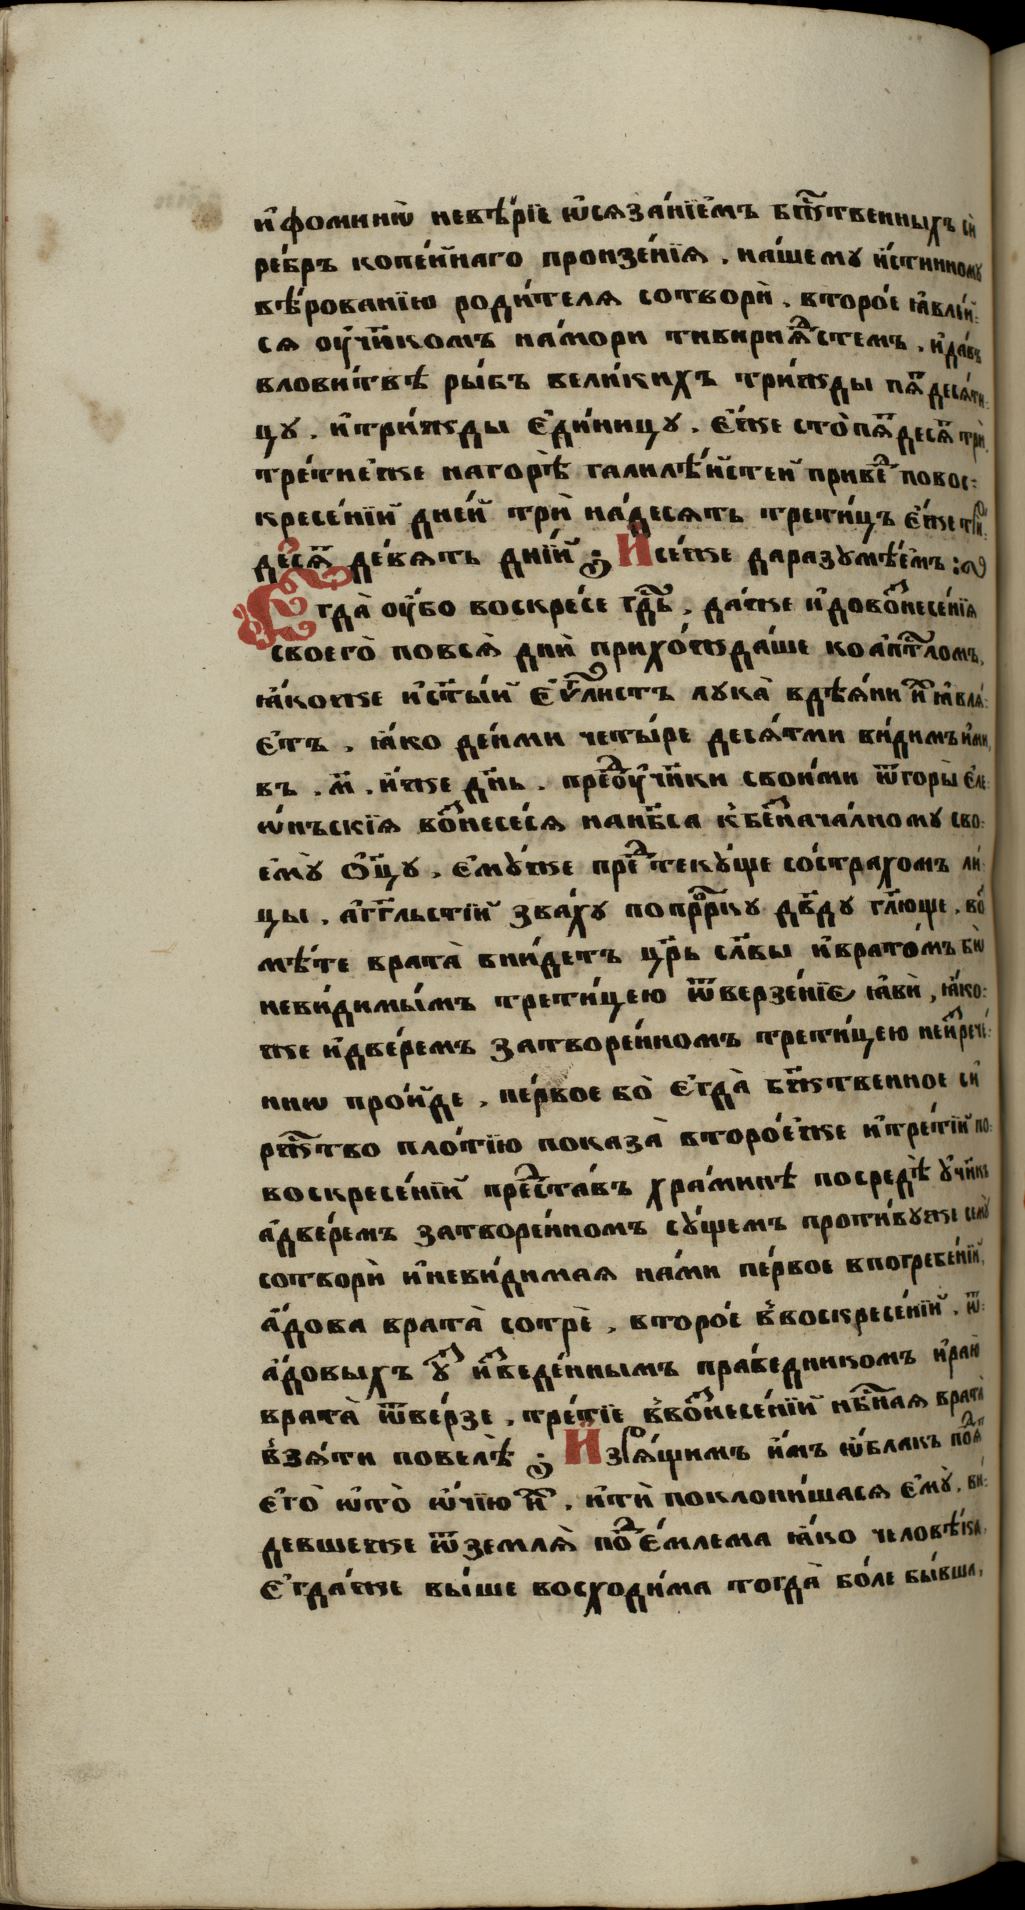 и҆ фоминѡ̀ невѣ́рїе ѡ҆сяза́нїемъ бж҃твенныхъ єѝ
ре́бръ копе́йнаго пронзе́нїя , на́шему и҆́стинному
вѣ́рованїю роди́теля сотворѝ . второ́е ꙗ҆вле́й:
ся ᲂу҆чн҃ко́мъ на мо́ри тивириа́дстемъ . и҆ да́въ
в лови́твѣ ры́бъ вели́кихъ три́жды пя̑десѧ́ти:
цу . и҆ три́жды є҆ди́ницу . є҆́же сто̀ пя̑деся̑ трѝ.
тре́тие же на горѣ̀ галилѣ́йстей приве́д по вос:
кресе́нїи̑ дне́й трѝ на́десять трети́цъ є҆́же три́:
деся̑ де́вять дні́й ; И҆ сѐ же да разумѣ́емъ :
Є҆гда̀ ᲂу҆́бо воскре́се гд҇ь , да́же и҆ до во̑знесе́нїя
своего̀ по вся̀ днѝ прихо́ждаше ко а҆пт҇ломъ,
ꙗ҆́коже и҆ ст҃ы́й є҆ѵ҃ли́стъ лука̀ в дѣѧ́нии̑ ꙗ҆вля́:
єтъ , ꙗ҆́ко де́нми четы́ре десѧ́тми ви́димъ и҆́ми,
въ . м҃ . и҆́же дн҃ь . пред ᲂу҆чн҃ки свои́ми ѿ горы̀ є҆ле:
ѡ́нъскїя во̑знесе́ся на нб҃са к бе̑знача́лному сво:
ему̀ ѻ҆ц҃у̀ , є҆му́же предтеку́ще со стра́хомъ ли:
цы , а҆гг҃льстїи̑ зва́ху по прⷪ҇рку дв҃ду гл҃юще , во́
мѣ́те врата̀ вни́детъ цр҃ь сла́вы и҆ врато́мъ бѡ̀
неви́димымъ трети́цею ѿверзе́нїе ꙗ҆вѝ , ꙗ҆́ко:
же и҆ две́ремъ затворе́нномъ трети́цею неи̑зрече́:
ннѡ про́йде , пе́рвое бо̀ є҆гда̀ бж҃твенное єѝ
рж҃тво пло́тїю показа̀ второ́е же и҆ тре́тїи̑ по:
воскресе́нїи̑ предста́въ хра́минѣ посредѣ̀ ᲂу҆чн҃къ
а҆ две́ремъ затворе́нномъ су́щемъ проти́вуже сему̀
сотворѝ и҆ неви́димая на́ми пе́рвое в погребе́нїи̑,
а҆́дова врата̀ сотрѐ , второ́е в воскресе́нїи̑ . ѿ:
а҆́довыхъ ᲂу҆́з и҆̑зведе́ннымъ пра́ведникомъ и҆ ра́ю
врата̀ ѿве́рзе , тре́тїе в во̑знесе́нїи̑ нб҃ная врата̀
взѧ́ти повелѣ̀ ; И҆ зрѧ́щимъ и҆́мъ ѡ҆́блакъ подъѧ̀
є҆го̀ ѿ ѻ҆́чїю и̑х . и҆ тѝ поклони́шася є҆му̀ , ви:
девше же ѿ земля̀ под є҆́млема ꙗ҆́ко человѣ́ка,
Є҆гда́же вы́ше восходи́ма тогда̀ бо́ле бы́вша,